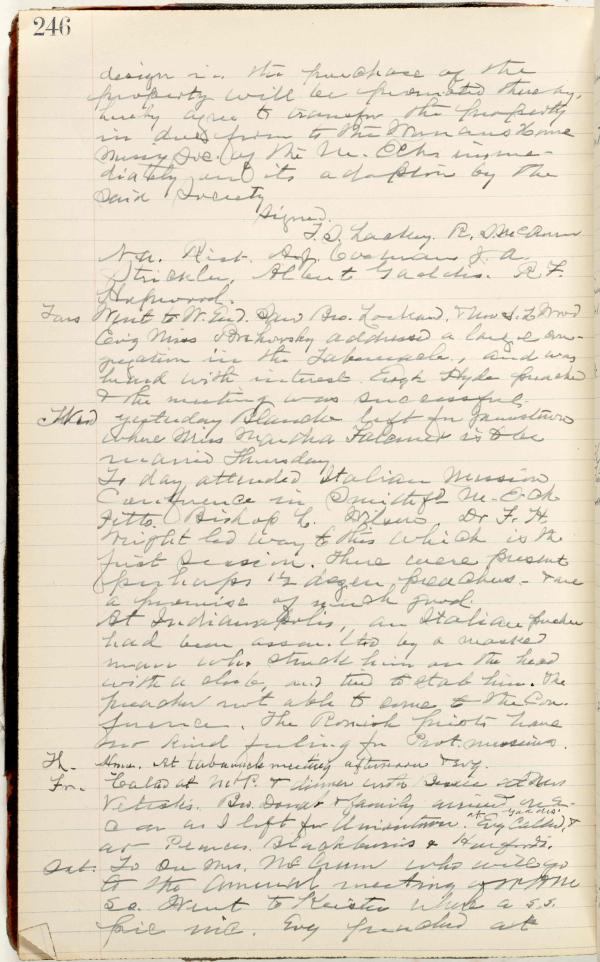 246
design in the purchase of the
property will be promoted thereby,
hereby agree to transfer the property
in due form to the Womans Home
Miss'y Soc. of the M. E. Ch. imme-
diately on its adoption by the
said Society
Signed.
T. S. Lackey. R. S. McCrum
N.A. Rist. A.J. Cochran J. A.
Strickler, Albert Gaddis. R. F.
Hopwood.
Tues Went to W. End. Saw Bro. Lockard.
Ev'g Miss addressed a large con-
gregation in the Tabernacle, and was
heard with interest. Ev'g Hyde preached
& the meeting was successful.
Wed yesterday Blanche left for Jamestown
where Miss Martha Falconer is to be
married Thursday
To day attended Italian Mission
Conference in Smithf'd M. E. Ch
Pitts. Bishop L. Wilson Dr F. H.
Wright led way to this which is the
first session. There were present
perhaps 1½ dozen preachers - &
a promise of much good.
At Indianapolis, an Italian preacher
had been assaulted by a masked
man who struck him on the head
with a club, and tried to stab him. The
preacher not able to come to the Con-
ference. The Romish priests have
no kind feeling for Prot. missions.
Th. Home. At tabernacle meeting afternoon & evg.
Fr. Called at Mt P. & dinner with
Bro. & family arrived on a
car as I left for Uniontown. Evg Called, &
at Gaddis'
at Pearces Blackburns &
Sat. To see Mrs. McCrum who will go
to the annual meeting of W H M
So. Went to Keister where a S. S.
pic nic. Evg preached at